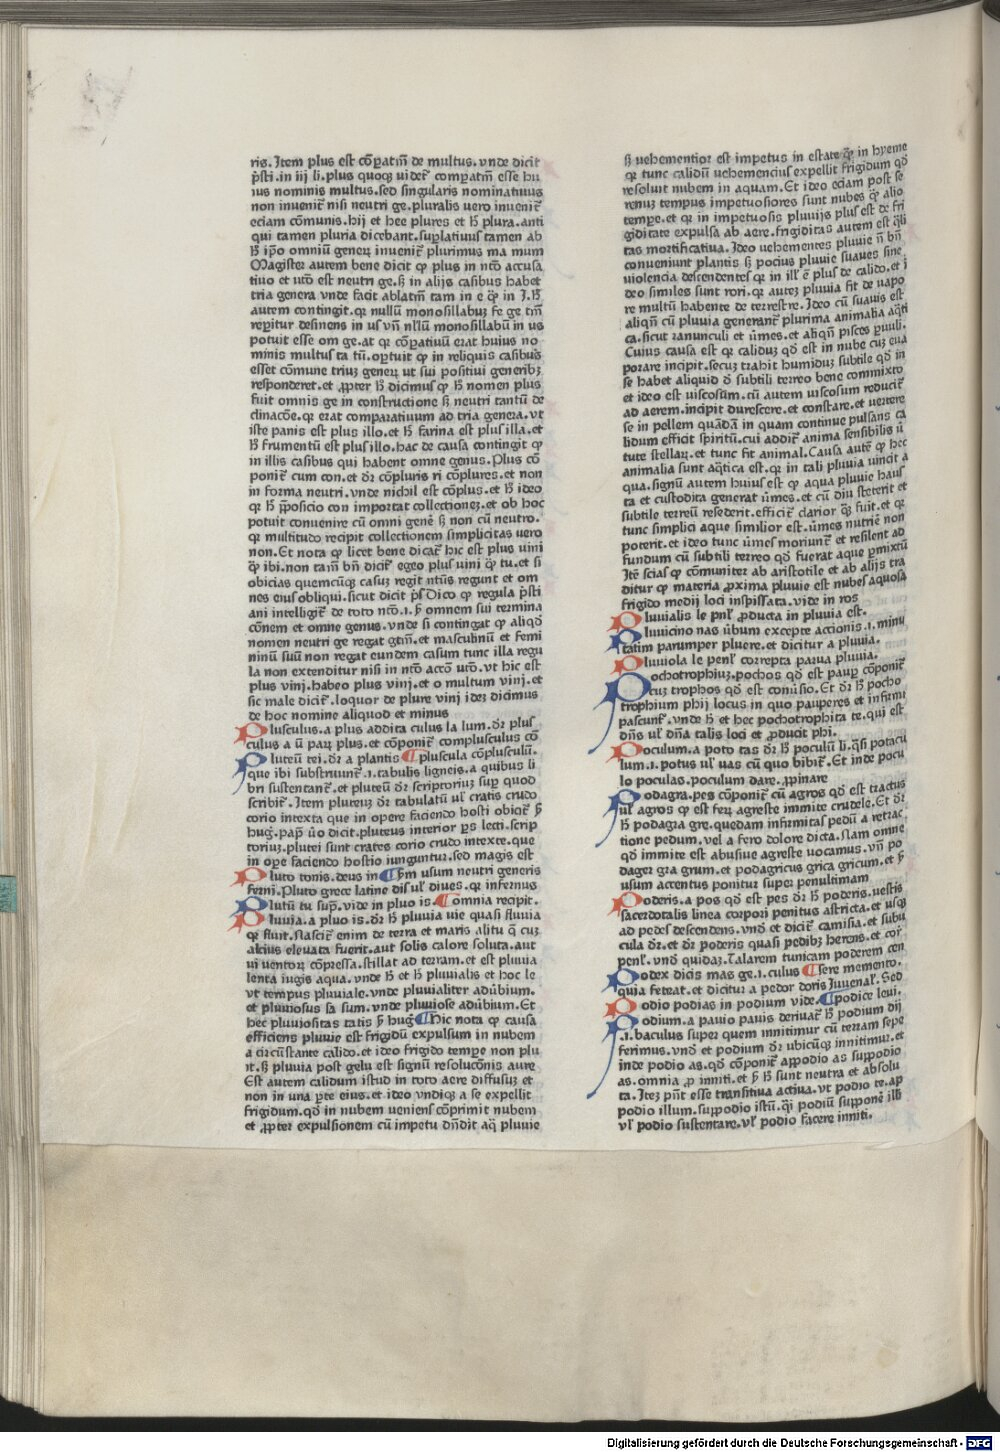 ris. Item plus est cōꝑatiū de multus. vnde dicit
p̄sti. in iij li. plus quoqꝫ videt̄ comꝑatiū esse hu
ius nominis multus. sed singularis nominatiuus
non inuenit̄ nisi neutri ge. pluralis uero inuenit̄
eciam cōmunis. hij et hee plures et h̄ plura. anti
qui tamen pluria dicebant. suꝑlatiuus tamen ab
h̄ ip̄o omniū geneꝝ inuenit̄ plurimus ma mum
Magister autem bene dicit ꝙ plus in nt̄o accusa
tiuo et ut̄o est neutri ge. ſꝫ in alijs casibus habet
tria genera vnde facit ablatiū tam in e ꝙ̄ in i. h̄
autem contingit. qꝛ nullū monosillabuꝫ fe ge tm̄
reꝑitur desinens in us vn̄ nl̄lū monosillabū in us
potuit esse om ge. at qꝛ cōꝑatiuū erat huius no
minis multus ta tū. oꝑtuit ꝙ in reliquis casibus
esset cōmune triuꝫ geneꝝ ut sui positiui generibꝫ
responderet. et ꝓpter h̄ dicimus ꝙ h̄ nomen plus
fuit omnis ge in constructione ſꝫ neutri tantū de
clinacōe. qꝛ erat comparatiuum ad tria genera. vt
iste panis est plus illo. et h̄ farina est plus illa. et
h̄ frumentū est plus illo. hac de causa contingit ꝙ
in illis casibus qui habent omne genus. Plus cō
ponit̄ cum con. et dr̄ cōpluris ri cōplures. et non
in forma neutri. vnde nichil est cōplus. et h̄ ideo
qꝛ h̄ p̄posicio con importat collectioneꝫ. et ob hoc
potuit conuenire cū omni genē ſꝫ non cū neutro.
qꝛ multitudo recipit collectionem simplicitas uero
non. Et nota ꝙ licet bene dicat̄ hic est plus vini
ꝙ̄ ibi. non tam̄ bn̄ dicit̄ egeo plus vini ꝙ̄ tu. et si
obicias quemcūqꝫ casuꝫ regit nt̄us regunt et om
nes eius obliqui. sicut dicit p̄s Dico ꝙ regula p̄sti
ani intelligit̄ de toto nt̄o. i. p̄ omnem sui termina
cōnem et omne genus. vnde si contingat ꝙ aliqd̄
nomen neutri ge regat gt̄m. et masculinū et femi
ninū suū non regat eundem casum tunc illa regu
la non extenditur nisi in nt̄o acc̄o ut̄o. vt hic est
plus vini. habeo plus vini. et o multum vini. et
sic male dicit̄. loquor de plure vini ideꝫ dicimus
de hoc nomine aliquod et minus
Plusculus. a plus addita culus la lum. dr̄ plus
culus a ū parꝫ plus. et cōponit̄ complusculus cō
Pluteū tei. dr̄ a plantis ¶ pluscula cōplusculū.
que ibi substruunt̄. i. tabulis ligneis. a quibus li
bri sustentant̄. et pluteū dr̄ scriptoriuꝫ suꝑ quod
scribit̄. Item pluteuꝫ dr̄ tabulatū ul̄ cratis crudo
corio intexta que in opere faciendo hosti obicit̄ p̄
hug̃. pap̄ ū̄o dicit. pluteus interior ꝑs lecti. scrip
torius. plutei sunt crates corio crudo intexte. que
in ope faciendo hostio iunguntur. sed magis est
Pluto tonis. deus in ¶ p̄m usum neutri generis
ferni. Pluto grece latine dis ul̄ diues. qꝛ infernus
Plutū tu sup̄. vide in pluo is. ¶ omnia recipit.
Pluuia. a pluo is. dr̄ h̄ pluuia uie quasi fluuia
qꝛ fluit. Nascit̄ enim de terra et maris alitu q̄ cuꝫ
alcius eleuata fuerit. aut solis calore soluta. aut
ui uentoꝝ cōpressa. stillat ad terram. et est pluuia
lenta iugis aqua. vnde h̄ et h̄ pluuialis et hoc le
vt tempus pluuiale. vnde pluuialiter adūbium.
et pluuiosus sa sum. vnde pluuiose adūbium. Et
hec pluuiositas tatis p̄ hug̃ ¶ Hic nota ꝙ causa
efficiens pluuie est frigidū expulsum in nubem
a circūstante calido. et ideo frigido tempe non plu
it. ſꝫ pluuia post gelu est signū resolucōnis aure
Est autem calidum istud in toto aere diffusuꝫ et
non in una ꝑte eius. et ideo vndiqꝫ a se expellit
frigidum. qd̄ in nubem ueniens cōprimit nubem
et ꝓpter expulsionem cū impetu dn̄dit aq̄ pluuie
ſꝫ uehementior est impetus in estate ꝙ̄ in hyeme
qꝛ tunc calidū uehemencius expellit frigidum qd̄
resoluit nubem in aquam. Et ideo eciam post se
renuꝫ tempus impetuosiores sunt nubes ꝙ̄ alio
tempe. et qꝛ in impetuosis pluuijs plus est de fri
giditate expulsa ab aere. frigiditas autem est q̄li
tas mortificatiua. Ideo uehementes pluuie n̄ bn̄
conueniunt plantis ſꝫ pocius pluuie suaues sine
violencia descendentes qꝛ in ill̄ ē plus de calido. et i
deo similes sunt rori. qꝛ auteꝫ pluuia fit de uapo
re multū habente de terrestre. Ideo cū suauis est
aliqn̄ cū pluuia generant̄ plurima animalia aq̄ti
ca. sicut ranunculi et ūmes. et aliqn̄ pisces ꝑuuli.
Cuius causa est qꝛ caliduꝫ qd̄ est in nube cuꝫ eua
porare incipit. secuꝫ trahit humiduꝫ subtile qd̄ in
se habet aliquid d̄ subtili terreo bene commixto
et ideo est uiscosum. cū autem uiscosum reducit̄
ad aerem. incipit durescere. et constare. et uertere
se in pellem quādā in quam continue pulsans ca
lidum efficit spiritū. cui addit̄ anima sensibilis ū
tute stellaꝝ. et tunc fit animal. Causa autē ꝙ hec
animalia sunt aq̄tica est. qꝛ in tali pluuia uincit a
qua. signū autem huius est ꝙ aqua pluuie haus
ta et custodita generat ūmes. et cū diu steterit et
subtile terreū resederit. efficit̄ clarior ꝙ̄ fuit. et qꝛ
tunc simplici aque similior est. ūmes nutrire non
poterit. et ideo tunc ūmes moriunt̄ et resilent ad
fundum cū subtili terreo qd̄ fuerat aque ꝑmixtū
Itē scias ꝙ cōmuniter ab aristotile et ab alijs tra
ditur ꝙ materia ꝓxima pluuie est nubes aquosa
frigido medij loci inspissata. vide in ros
Pluuialis le pnl̄ ꝓducta in pluuia est.
Pluuicino nas ūbum excepte accionis. i. minu
tatim parumper pluere. et dicitur a pluuia.
Pluuiola le penl̄ correpta parua pluuia.
Pochotrophiuꝫ. pochos qd̄ est pauꝑ cōponit̄
cuꝫ trophos qd̄ est conūsio. Et dr̄ h̄ pocho
trophium phij locus in quo pauperes et infirmi
pascunt̄. vnde h̄ et hec pochotrophita te. qui est
dn̄s ul̄ dn̄a talis loci et ꝓducit phi.
Poculum. a poto tas dr̄ h̄ poculū li. q̄si potacu
lum. i. potus ul̄ uas cū quo bibit̄. Et inde pocu
lo poculas. poculum dare. ꝓpinare
Podagra. pes cōponit̄ cū agros qd̄ est tractus
ul̄ agros ꝙ est feꝝ agreste immite crudele. Et dr̄
h̄ podagra gre. quedam infirmitas pedū a retrac
tione pedum. vel a fero dolore dicta. Nam omne
qd̄ immite est abusiue agreste uocamus. vn̄ po
dager gra grum. et podagricus grica gricum. et p̄
usum accentus ponitur super penultimam
Poderis. a pos qd̄ est pes dr̄ h̄ poderis. uestis
sacerdotalis linea corpori penitus astricta. et usqꝫ
ad pedes descendens. vnd̄ et dicit̄ camisia. et subu
cula dr̄. et dr̄ poderis quasi pedibꝫ herens. et cor̄
penl̄. vnd̄ quidaꝫ. Talarem tunicam poderem cen
Podex dicis mas ge. i. culus ¶ sere memento.
quia feteat. et dicitur a pedor doris Juuenal̄. Sed
Podio podias in podium vide. ¶ podice leui.
Podium. a pauio pauis deriuat̄ h̄ podium dij
.i. baculus super quem innitimur cū terram sepe
ferimus. vnd̄ et podium dr̄ ubicūqꝫ innitimur. et
inde podio as. qd̄ cōponit̄ appodio as suppodio
as. omnia ꝓ inniti. et p̄ h̄ sunt neutra et absolu
ta. Iteꝫ pn̄t esse transitiua actiua. vt podio te. ap
podio illum. suppodio istū. q̄i podiū supponē illi
ul̄ podio sustentare. ul̄ podio facere inniti.
Digitalisierung gefördert durch die Deutsche Forschungsgemeinschaft - DFG